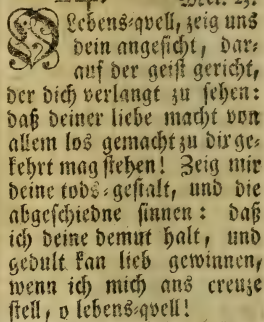 Mel. 23.
O Lebens-qvell, zeig uns
dein angesicht, dar-
auf der geist gericht,
der dich verlangt zu sehen:
daß deiner liebe macht von
allem los gemacht zu dir ge-
kehrt mag stehen! Zeig mir
deine tods-gestalt, und die
abgeschiedne sinnen: daß
ich deine demut halt, und
gedult kan lieb gewinnen,
wenn ich mich ans creuze
stell, o lebens-qvell!